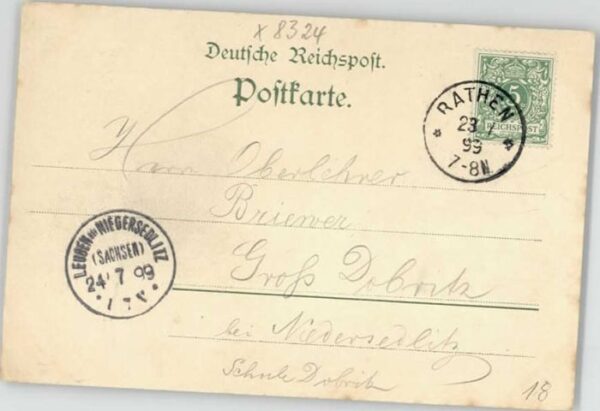 x 8324
Deutsche Reichspost.
Postkarte.
5
REICHSPOST
RATHEN
23
99
7-8N
Herrn Oberlehrer
Briewer
Groß Dobritz
bei Niedersedlitz
Schule Dobritz
LEUBEN NIEDERSEDLITZ
(SACHSEN)
24 7 99
18